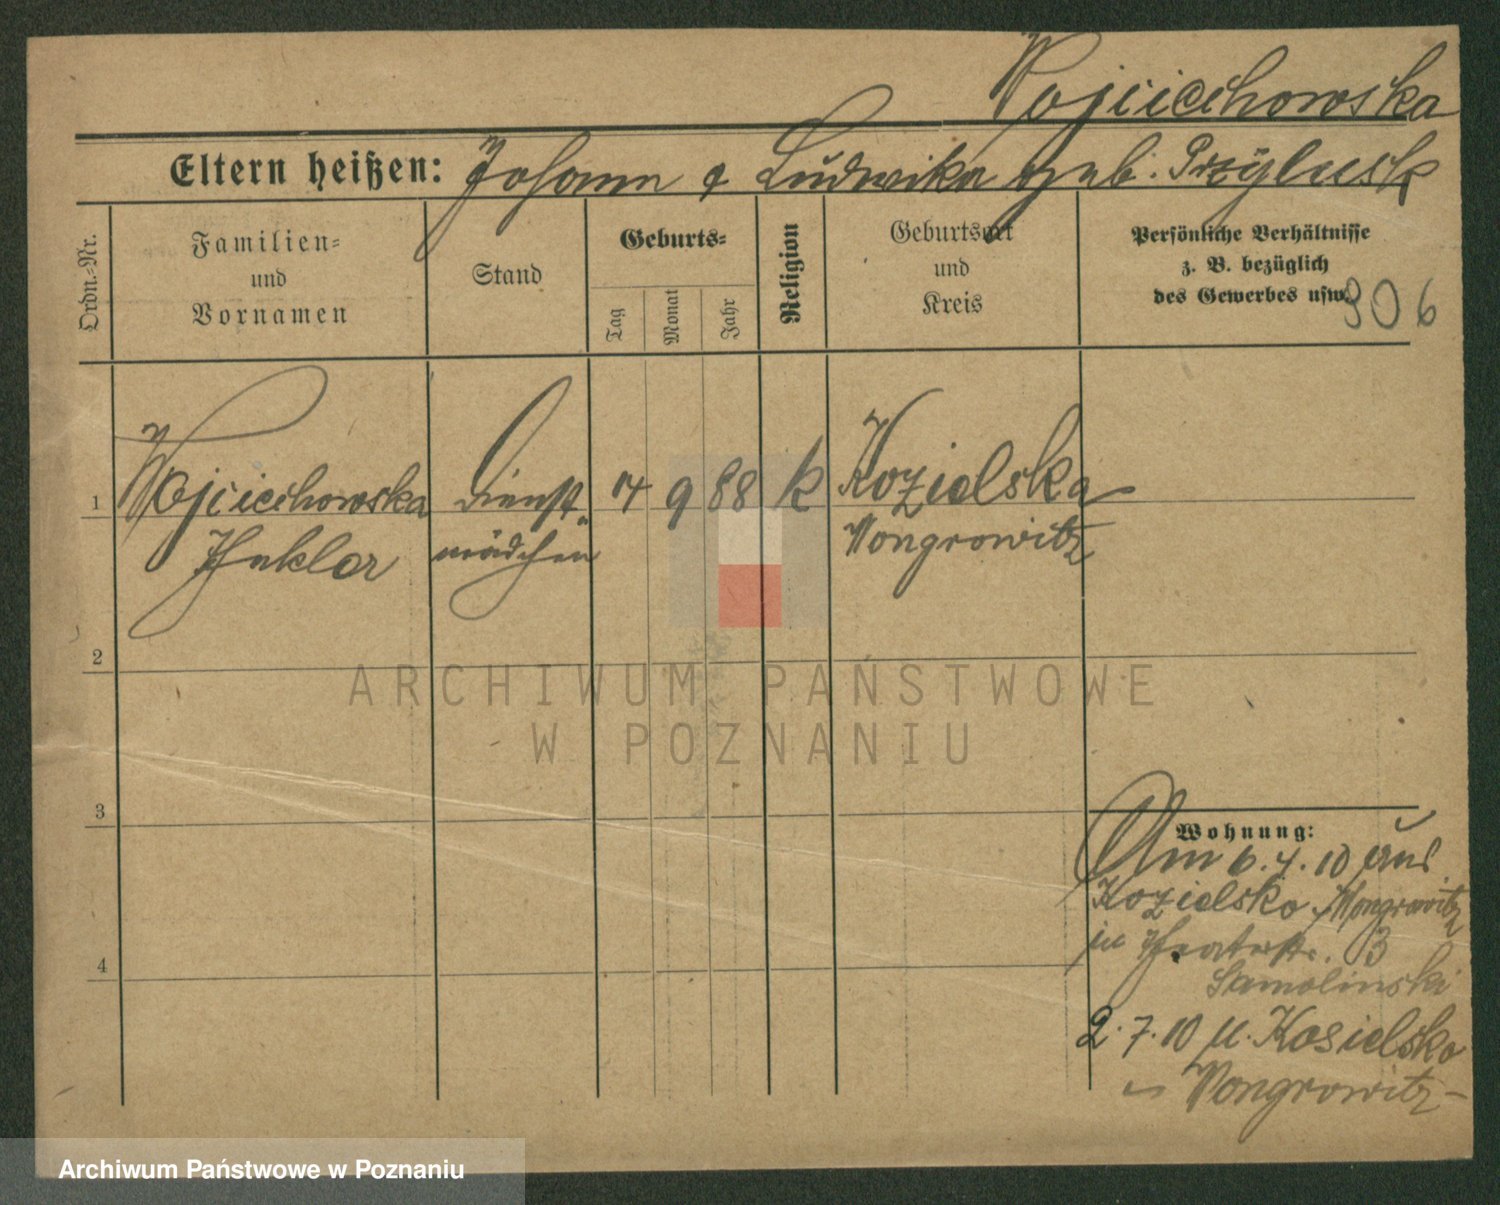 Wojciechowska
Eltern heißen: Johann & Ludwika geb. Przylusk
Ordn.-Nr.
Familien-
und
Vornamen
Stand
Geburts-
Tag
Monat
Jahr
Religion
Geburtsort
und
Kreis
Persönliche Verhältnisse
z. B. bezüglich
des Gewerbes usw.
306
1
Wojciechowska
Dienst-
mädchen
14 9 88 k
Kozielska
Wongrowitz
2
3
4
Wohnung:
Am 6. 4. 10 aus
Kozielsko Wongrowitz
in 3
Samolinski
2. 7. 10 n. Kosielsko
Wongrowitz
ARCHIWUM PAŃSTWOWE
W POZNANIU
Archiwum Państwowe w Poznaniu